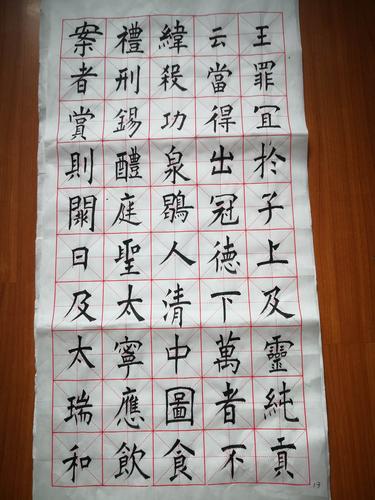 案禮緯云王
者刑殺當罪
賞錫功得冝
則醴泉出於
闕庭鶡冠子
曰聖人德上
及太清下及
太寧中萬靈
瑞應圖者純
和飲食不貢
13